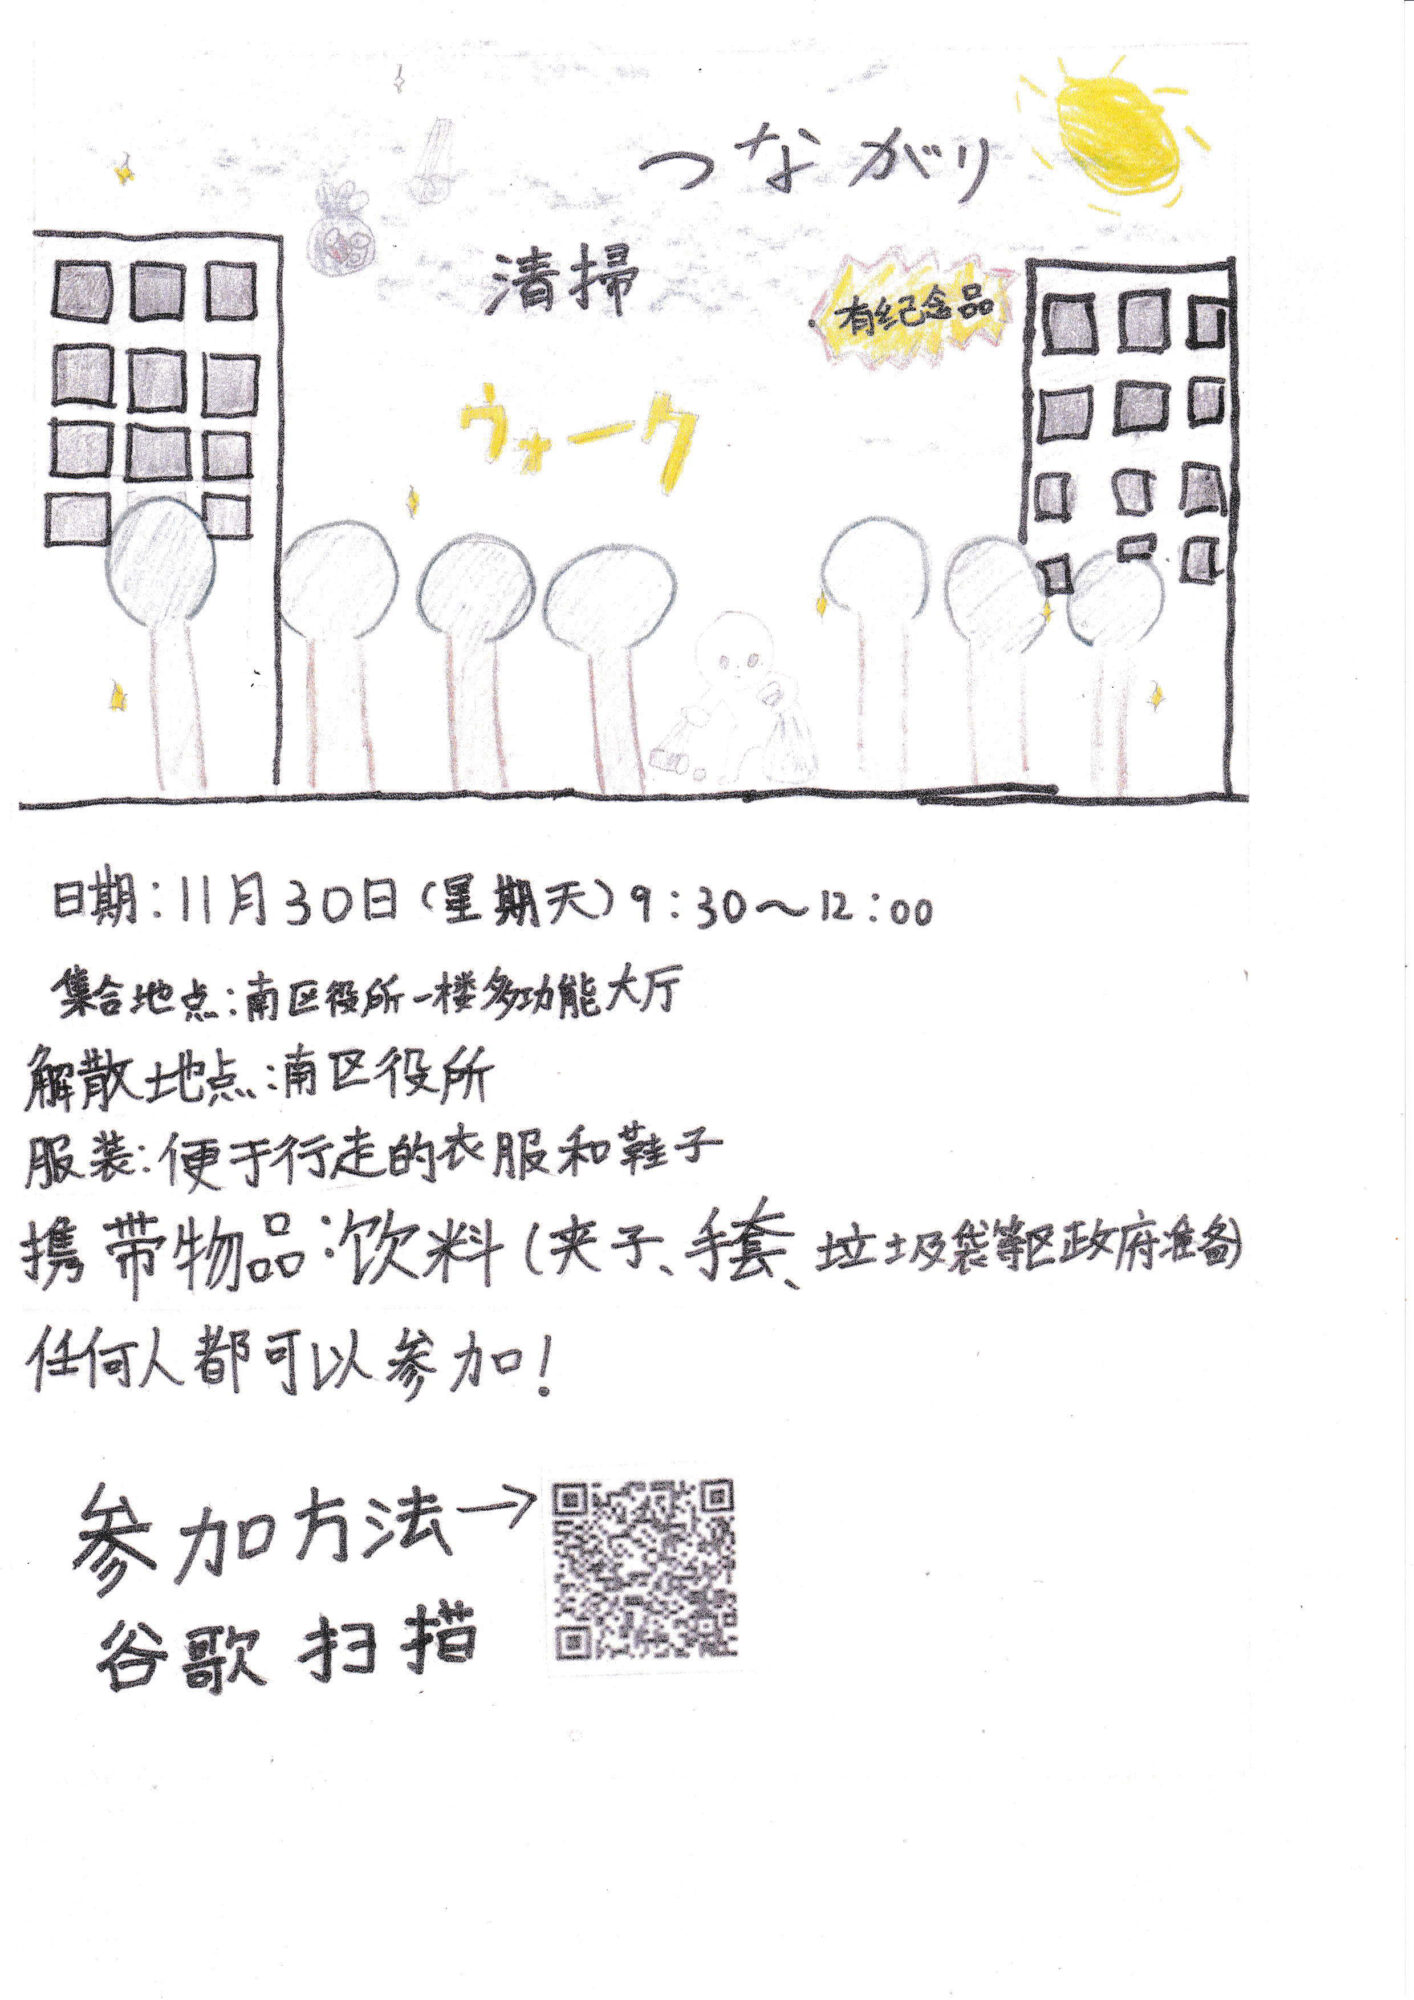 つながり
清掃
有纪念品
ウォーク
日期:11月30日(星期天)9:30～12:00
集合地点:南区役所一楼多功能大厅
解散地点:南区役所
服装:便于行走的衣服和鞋子
携带物品:饮料(夹子、手套、垃圾袋等区政府准备)
任何人都可以参加!
参加方法→
谷歌扫描